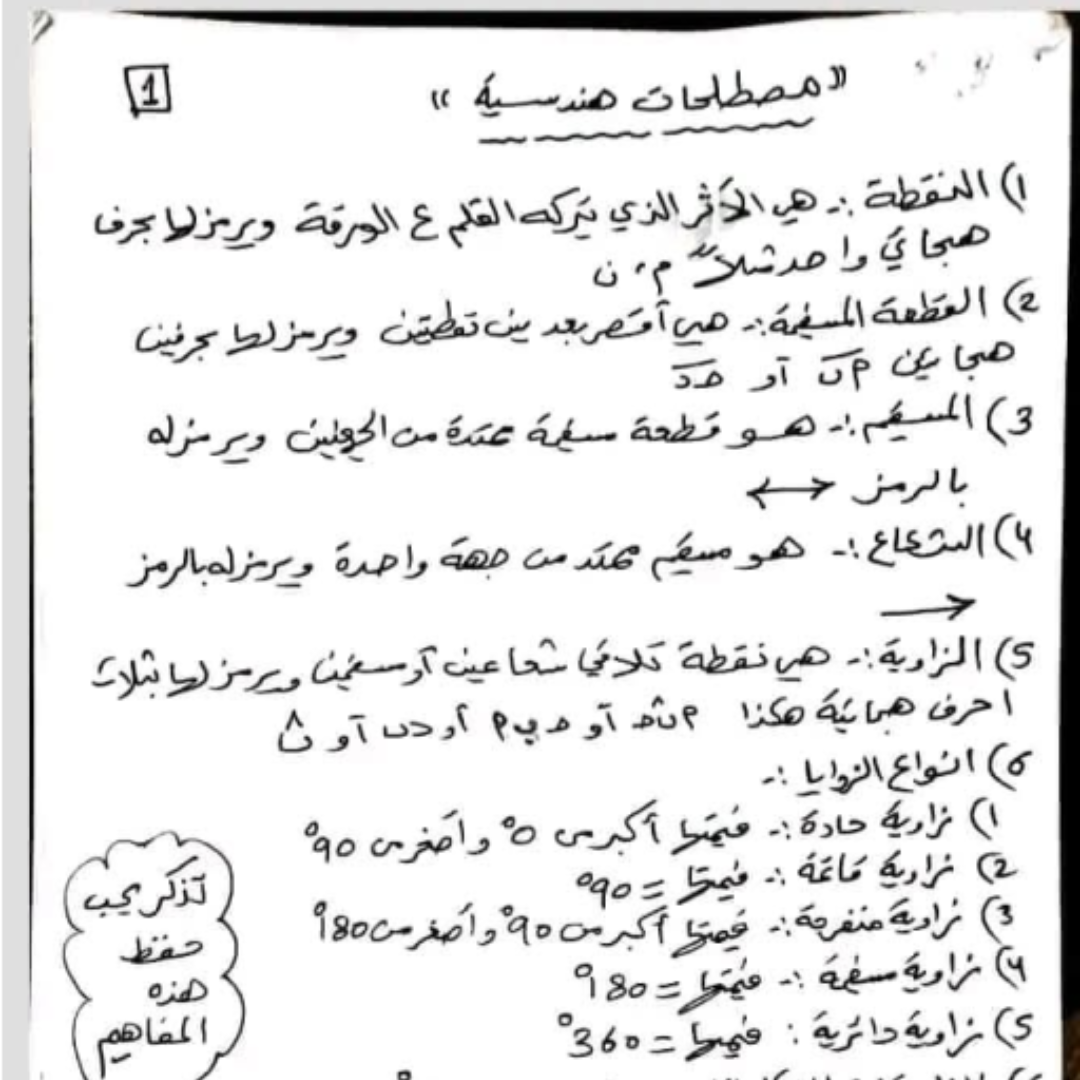 "مصطلحات هندسية"
1
1) النقطة :- هي الأثر الذي يتركه القلم ع الورقة ويرمز لها بحرف
هجائي واحد مثلاً م، ن
2) القطعة المستقيمة :- هي أقصر بعد بين نقطتين ويرمز لها بحرفين
هجائين م ن أو حـ د
3) المستقيم :- هو قطعة مستقيمة ممتدة من الجهتين ويرمز له
بالرمز ↔
4) الشعاع :- هو مستقيم ممتد من جهة واحدة ويرمز له بالرمز
→
5) الزاوية :- هي نقطة تلاقي شعاعين أو مستقيمين ويرمز لها بثلاث
احرف هجائية هكذا أو أو أو
6) انواع الزوايا :-
1) زاوية حادة :- قيمتها أكبر من 0° وأصغر من 90°
2) زاوية قائمة :- قيمتها = 90°
3) زاوية منفرجة :- قيمتها أكبر من 90° وأصغر من 180°
4) زاوية مستقيمة :- قيمتها = 180°
5) زاوية دائرية : قيمتها = 360°
تذكر يجب
حفظ
هذه
المفاهيم